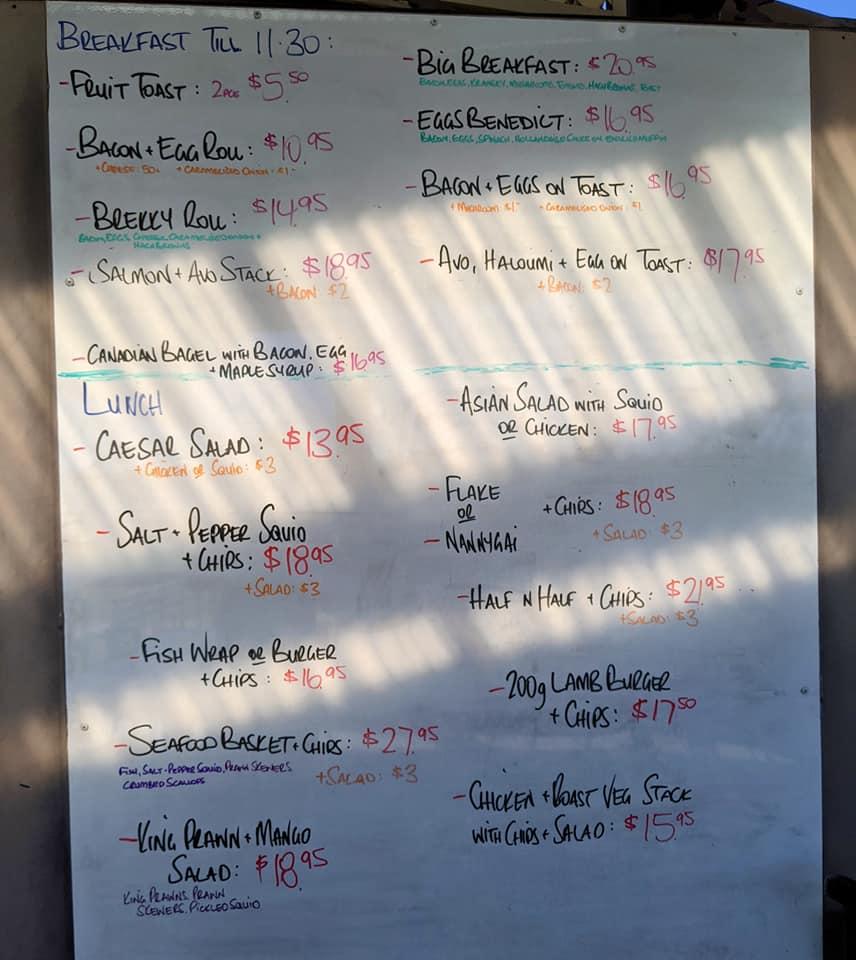 BREAKFAST TILL 11:30:
- FRUIT TOAST: 2PCE $5.50
- BACON + EGG ROLL: $10.95
+ CHEESE: 50¢ + CARAMELISED ONION: $1
- BREKKY ROLL: $14.95
BACON, EGGS, CHEESE, CARAMELISED ONION +
HASH BROWNS
- SALMON + AVO STACK: $18.95
+ BACON: $2
- CANADIAN BAGEL WITH BACON, EGG
+ MAPLE SYRUP: $16.95
- BIG BREAKFAST: $20.95
BACON, EGGS, KRANSKY, MUSHROOMS, TOMATO, HASH BROWNS, TOAST
- EGGS BENEDICT: $16.95
BACON, EGGS, SPINACH, HOLLANDAISE SAUCE ON ENGLISH MUFFIN
- BACON + EGGS ON TOAST: $16.95
+ MUSHROOM: $1 + CARAMELISED ONION: $1
- AVO, HALOUMI + EGG ON TOAST: $17.95
+ BACON: $2
LUNCH
- CAESAR SALAD: $13.95
+ CHICKEN OR SQUID: $3
- SALT + PEPPER SQUID
+ CHIPS: $18.95
+ SALAD: $3
- FISH WRAP OR BURGER
+ CHIPS: $16.95
- SEAFOOD BASKET + CHIPS: $27.95
FISH, SALT + PEPPER SQUID, PRAWN SKEWERS
CRUMBED SCALLOPS
+ SALAD: $3
- KING PRAWN + MANGO
SALAD: $18.95
KING PRAWNS, PRAWN
SKEWERS, PICKLED SQUID
- ASIAN SALAD WITH SQUID
OR CHICKEN: $17.95
- FLAKE
OR
- NANNYGAI
+ CHIPS: $18.95
+ SALAD: $3
- HALF N HALF + CHIPS: $21.95
+ SALAD: $3
- 200g LAMB BURGER
+ CHIPS: $17.50
- CHICKEN + ROAST VEG STACK
WITH CHIPS + SALAD: $15.95